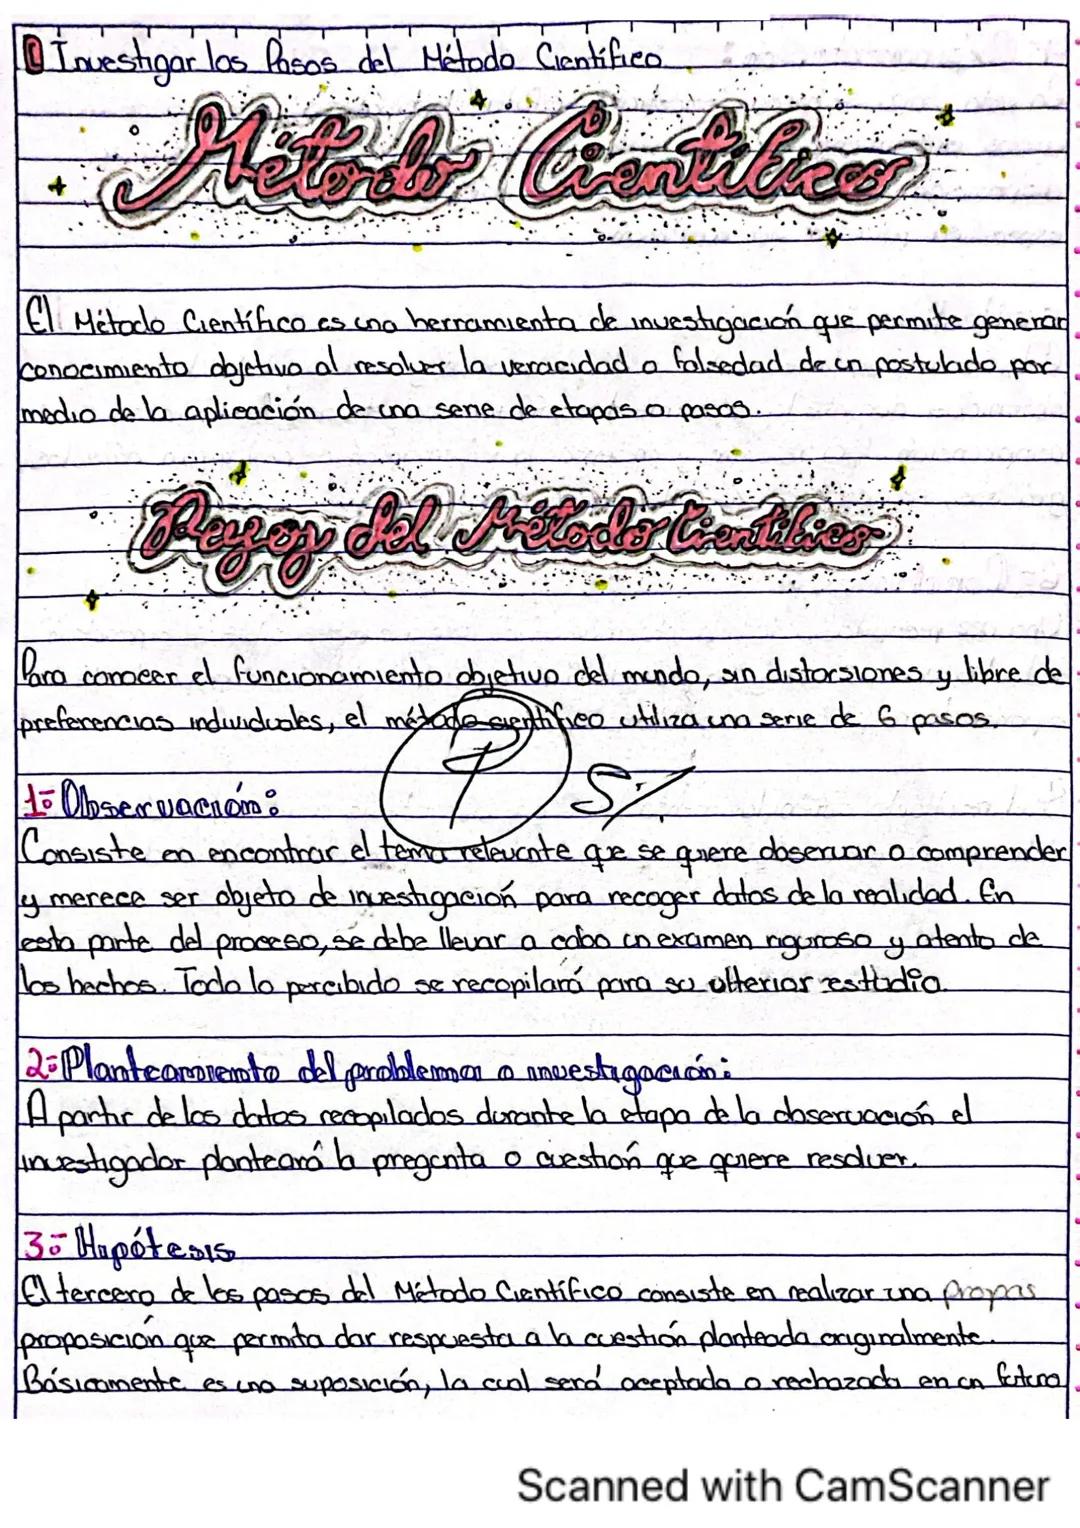 Investigar los Pasos del Método Científico
Método Científico
El Método Científico es una herramienta de investigación que permite generar
conocimiento objetivo al resolver la veracidad o falsedad de un postulado por
medio de la aplicación de una serie de etapas o pasos.
Pasos del Método Científico
Para conocer el funcionamiento objetivo del mundo, sin distorsiones y libre de
preferencias individuales, el método científico utiliza una serie de 6 pasos.
1- Observación:
Consiste en encontrar el tema relevante que se quiere observar o comprender
y merece ser objeto de investigación para recoger datos de la realidad. En
esta parte del proceso, se debe llevar a cabo un examen riguroso y atento de
los hechos. Todo lo percibido se recopilará para su ulterior estudio.
2- Planteamiento del problema o investigación:
A partir de los datos recopilados durante la etapa de la observación el
investigador planteará la pregunta o cuestión que quiere resolver.
3- Hipótesis
El tercero de los pasos del Método Científico consiste en realizar una propas
proposición que permita dar respuesta a la cuestión planteada originalmente.
Básicamente es una suposición, la cual será aceptada o rechazada en un futuro
Scanned with CamScanner